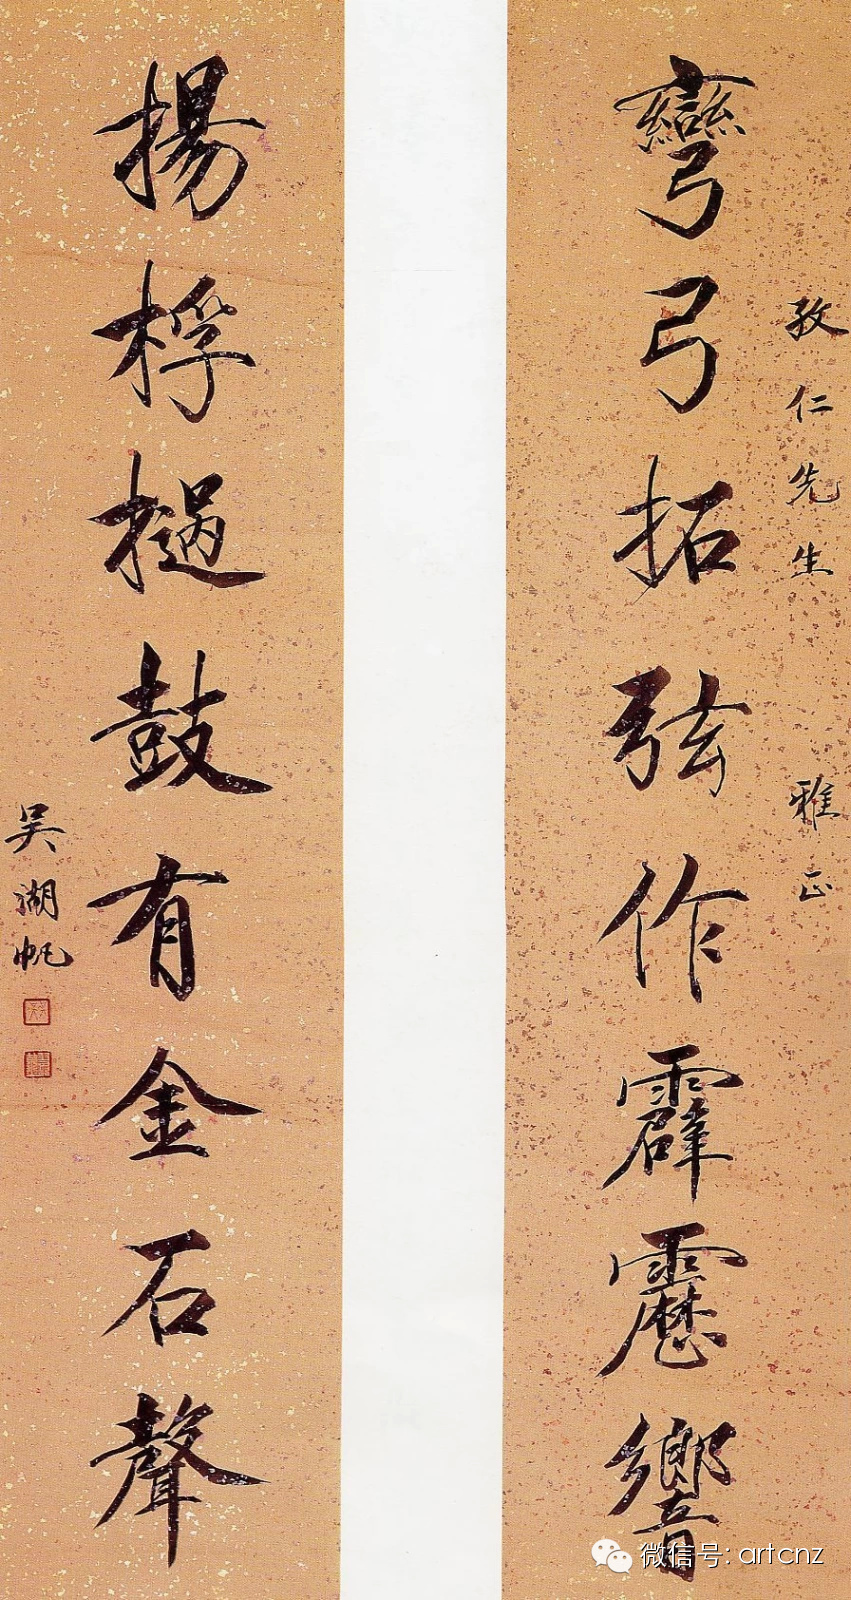 孜仁先生 雅正
彎弓拓弦作霹靂響
揚桴撾鼓有金石聲
吳湖帆
微信号: artcnz